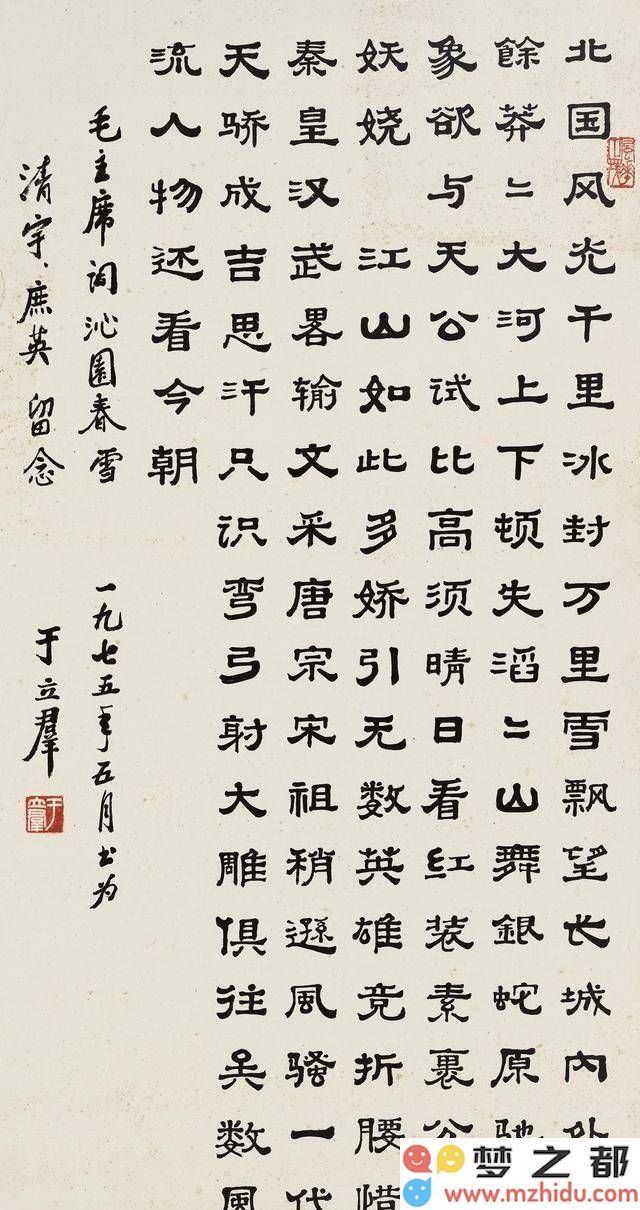 北国风光千里冰封万里雪飘望长城内外
餘莽〻大河上下顿失滔〻山舞銀蛇原驰
象欲与天公试比高须晴日看红装素裹分
妖娆江山如此多娇引无数英雄竞折腰惜
秦皇汉武畧输文采唐宗宋祖稍遜風骚一代
天骄成吉思汗只识弯弓射大雕俱往矣数風
流人物还看今朝
毛主席词沁園春雪 一九七五年五月书为
清宇、庶英留念 于立羣
于立羣
梦之都
www.mzhidu.com